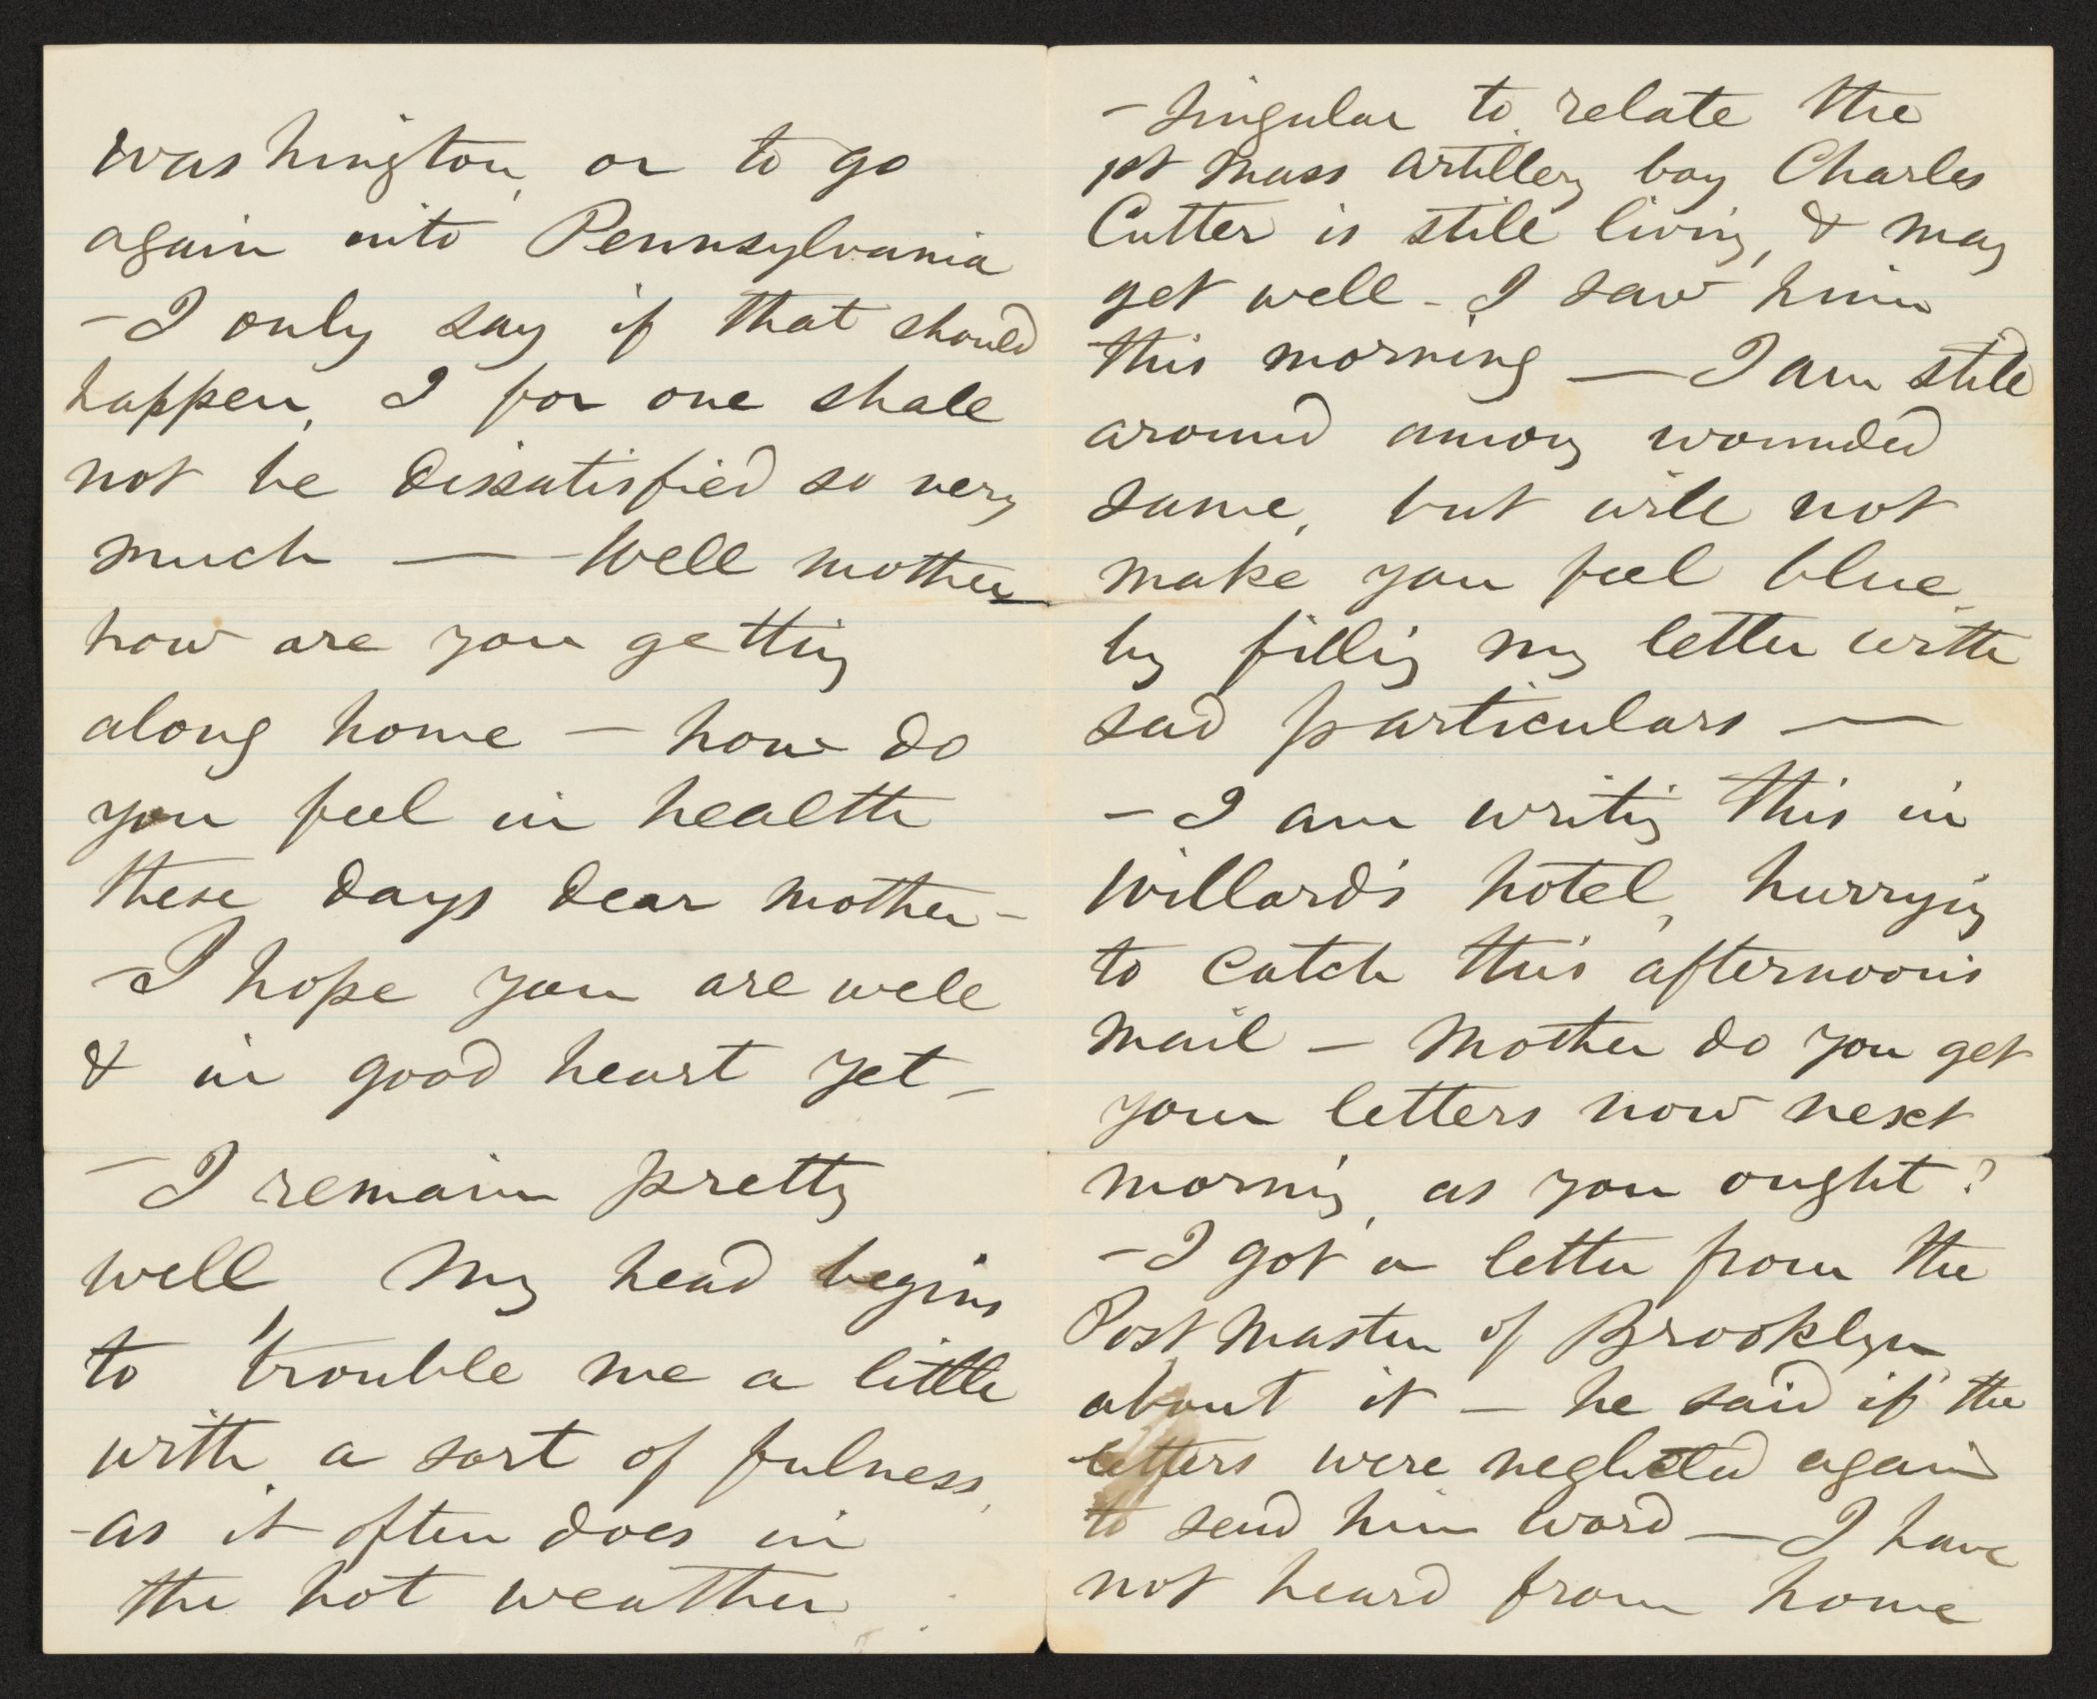 Washington, or to go
again into Pennsylvania
- I only say if that should
happen, I for one shall
not be dissatisfied so very
much — Well mother
how are you getting
along home — how do
you feel in health
these days dear mother -
- I hope you are well
& in good heart yet -
- I remain pretty
well, my head begins
to trouble me a little
with a sort of fulness,
as it often does in
the hot weather
- singular to relate the
1st Mass artillery boy Charles
Cutter is still living, & may
get well - I saw him
this morning — I am still
around among wounded
same, but will not
make you feel blue
by filling my letter with
sad particulars —
- I am writing this in
Willard's hotel, hurrying
to catch this afternoon's
mail - Mother do you get
your letters now next
morning, as you ought?
- I got a letter from the
Post Master of Brooklyn
about it - he said if the
letters were neglected again
to send him word — I have
not heard from home